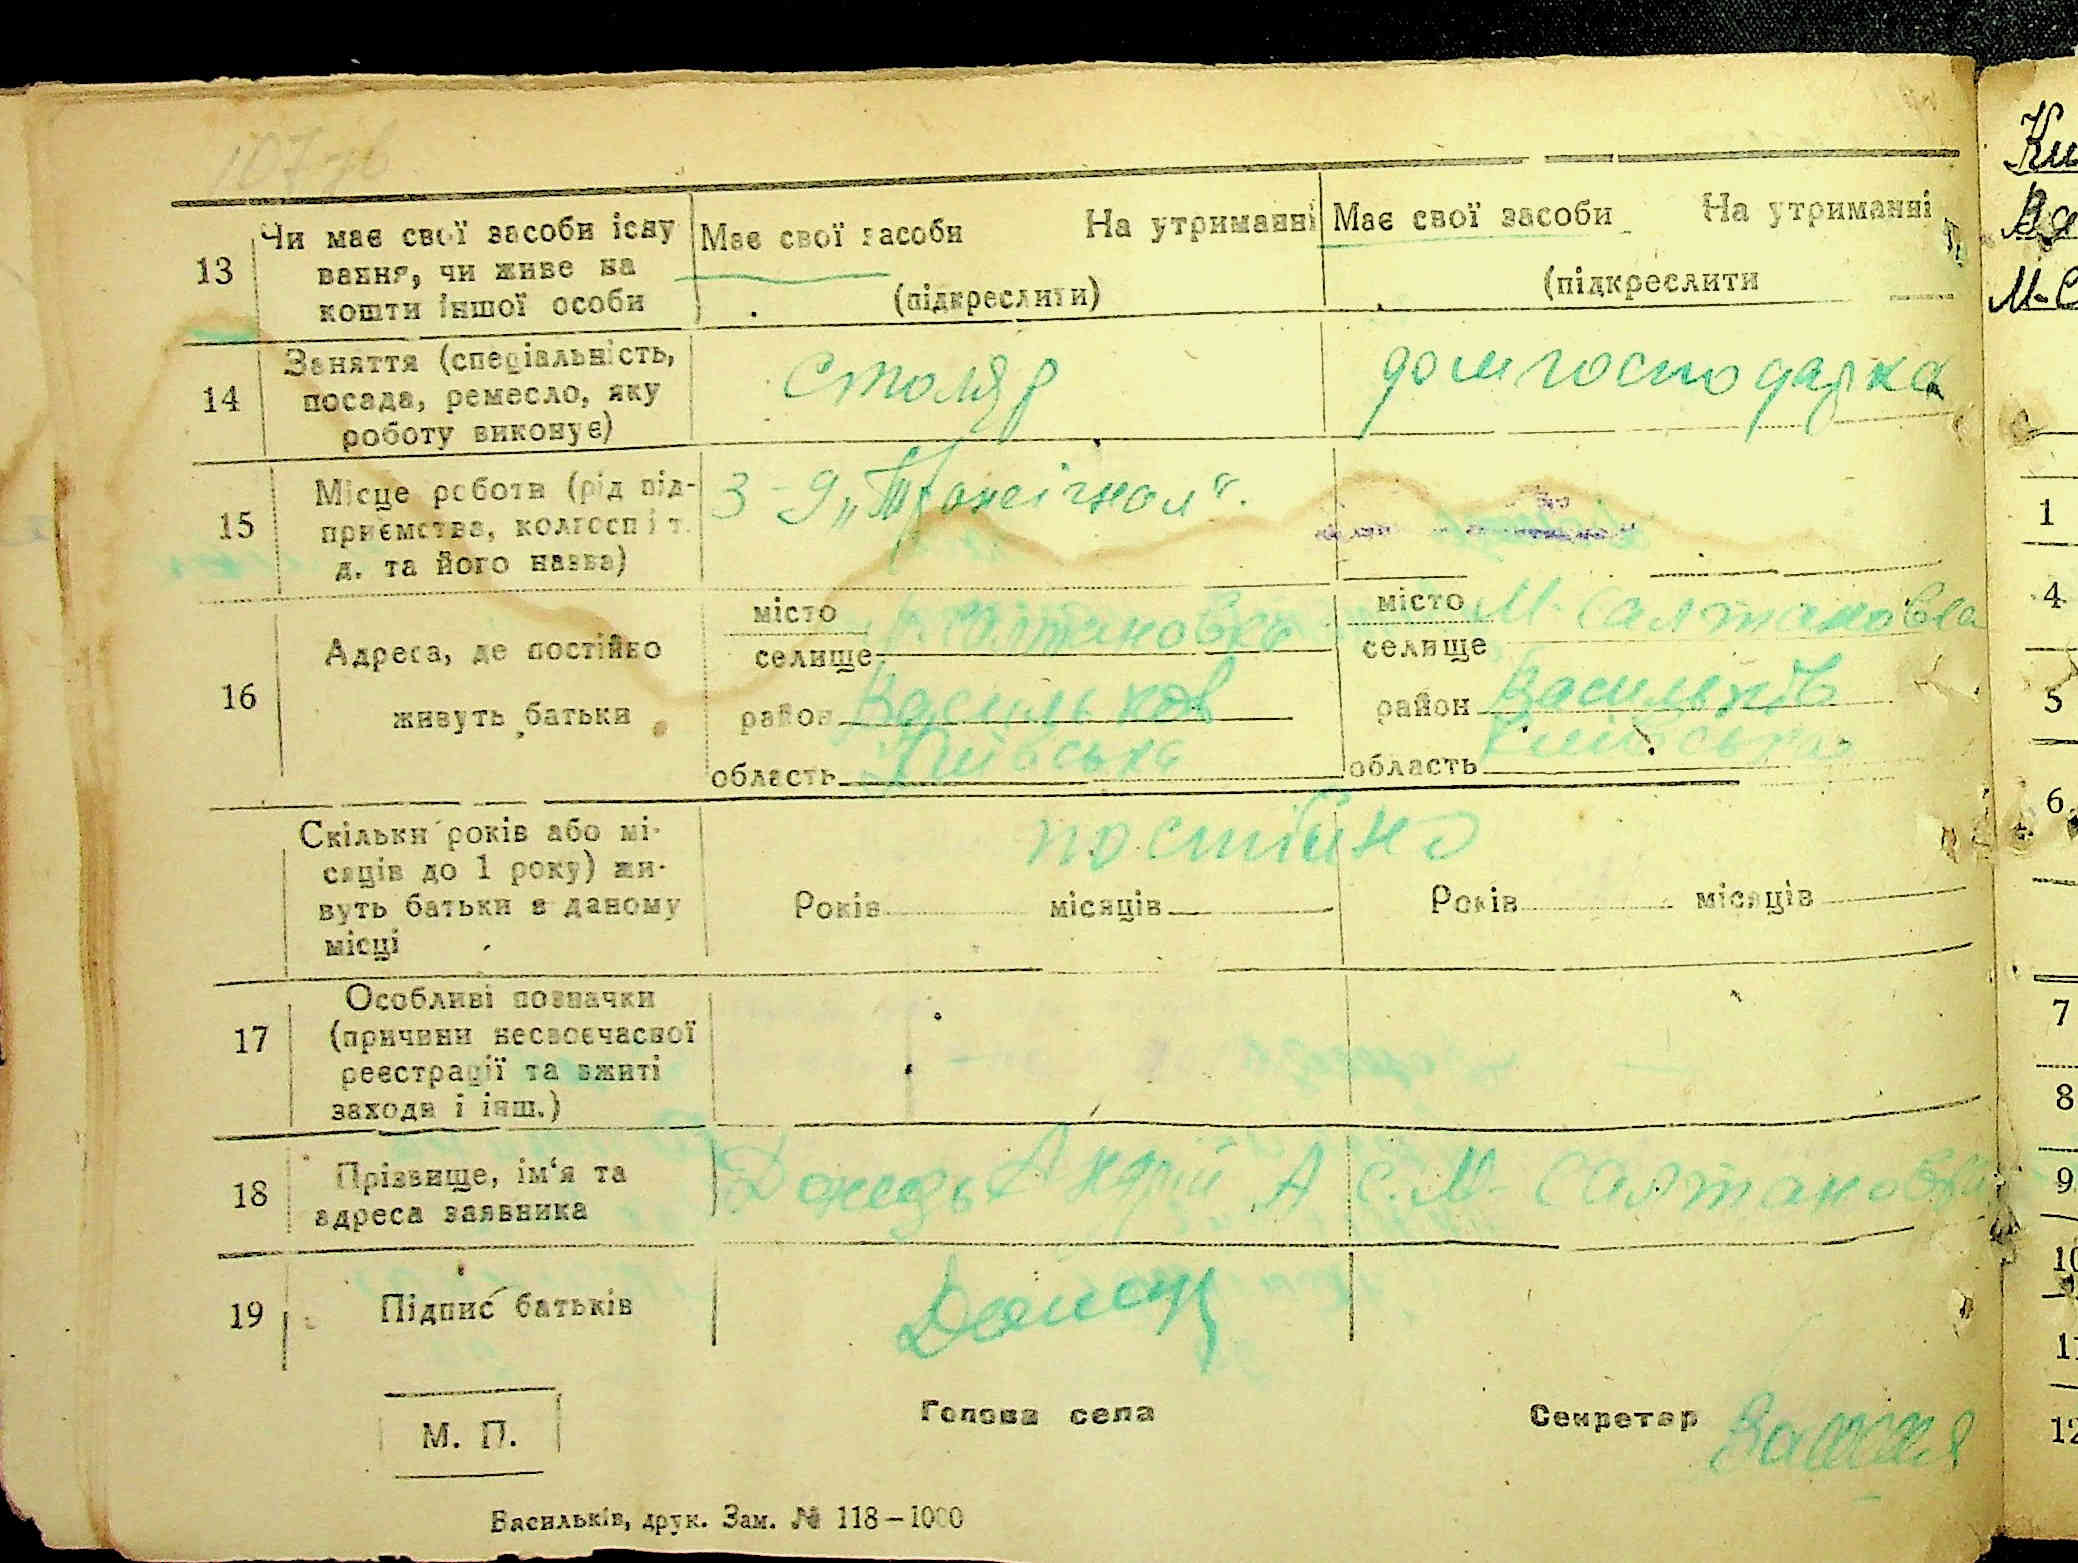 107 зв
13 Чи має свої засоби існу
вання, чи живе на
кошти іншої особи
Має свої засоби На утриманні
(підкреслити)
Має свої засоби На утриманні
(підкреслити
14 Заняття (спеціальність,
посада, ремесло, яку
роботу виконує)
столяр
домгосподарка
15 Місце роботи (рід під-
приємства, колгосп і т.
д. та його назва)
З-д „Транссигнал“.
16 Адреса, де постійно
живуть батьки
місто
селище М Салтановка
район Васильков
область Київська
місто
селище М-Салтановка
район Васильків
область Київська
Скільки років або мі-
сяців до 1 року) жи-
вуть батьки в даному
місці
постійно
Років місяців
Років місяців
17 Особливі позначки
(причини несвоєчасної
реєстрації та вжиті
заходи і інш.)
18 Прізвище, ім‘я та
адреса заявника
Андрій А с. М-Салтановка
19 Підпис батьків
М. П.
Голова села
Секретар
Васильків, друк. Зам. № 118—1000
Ки
Ва
М-С
1
4
5
6
7
8
9
10
11
12